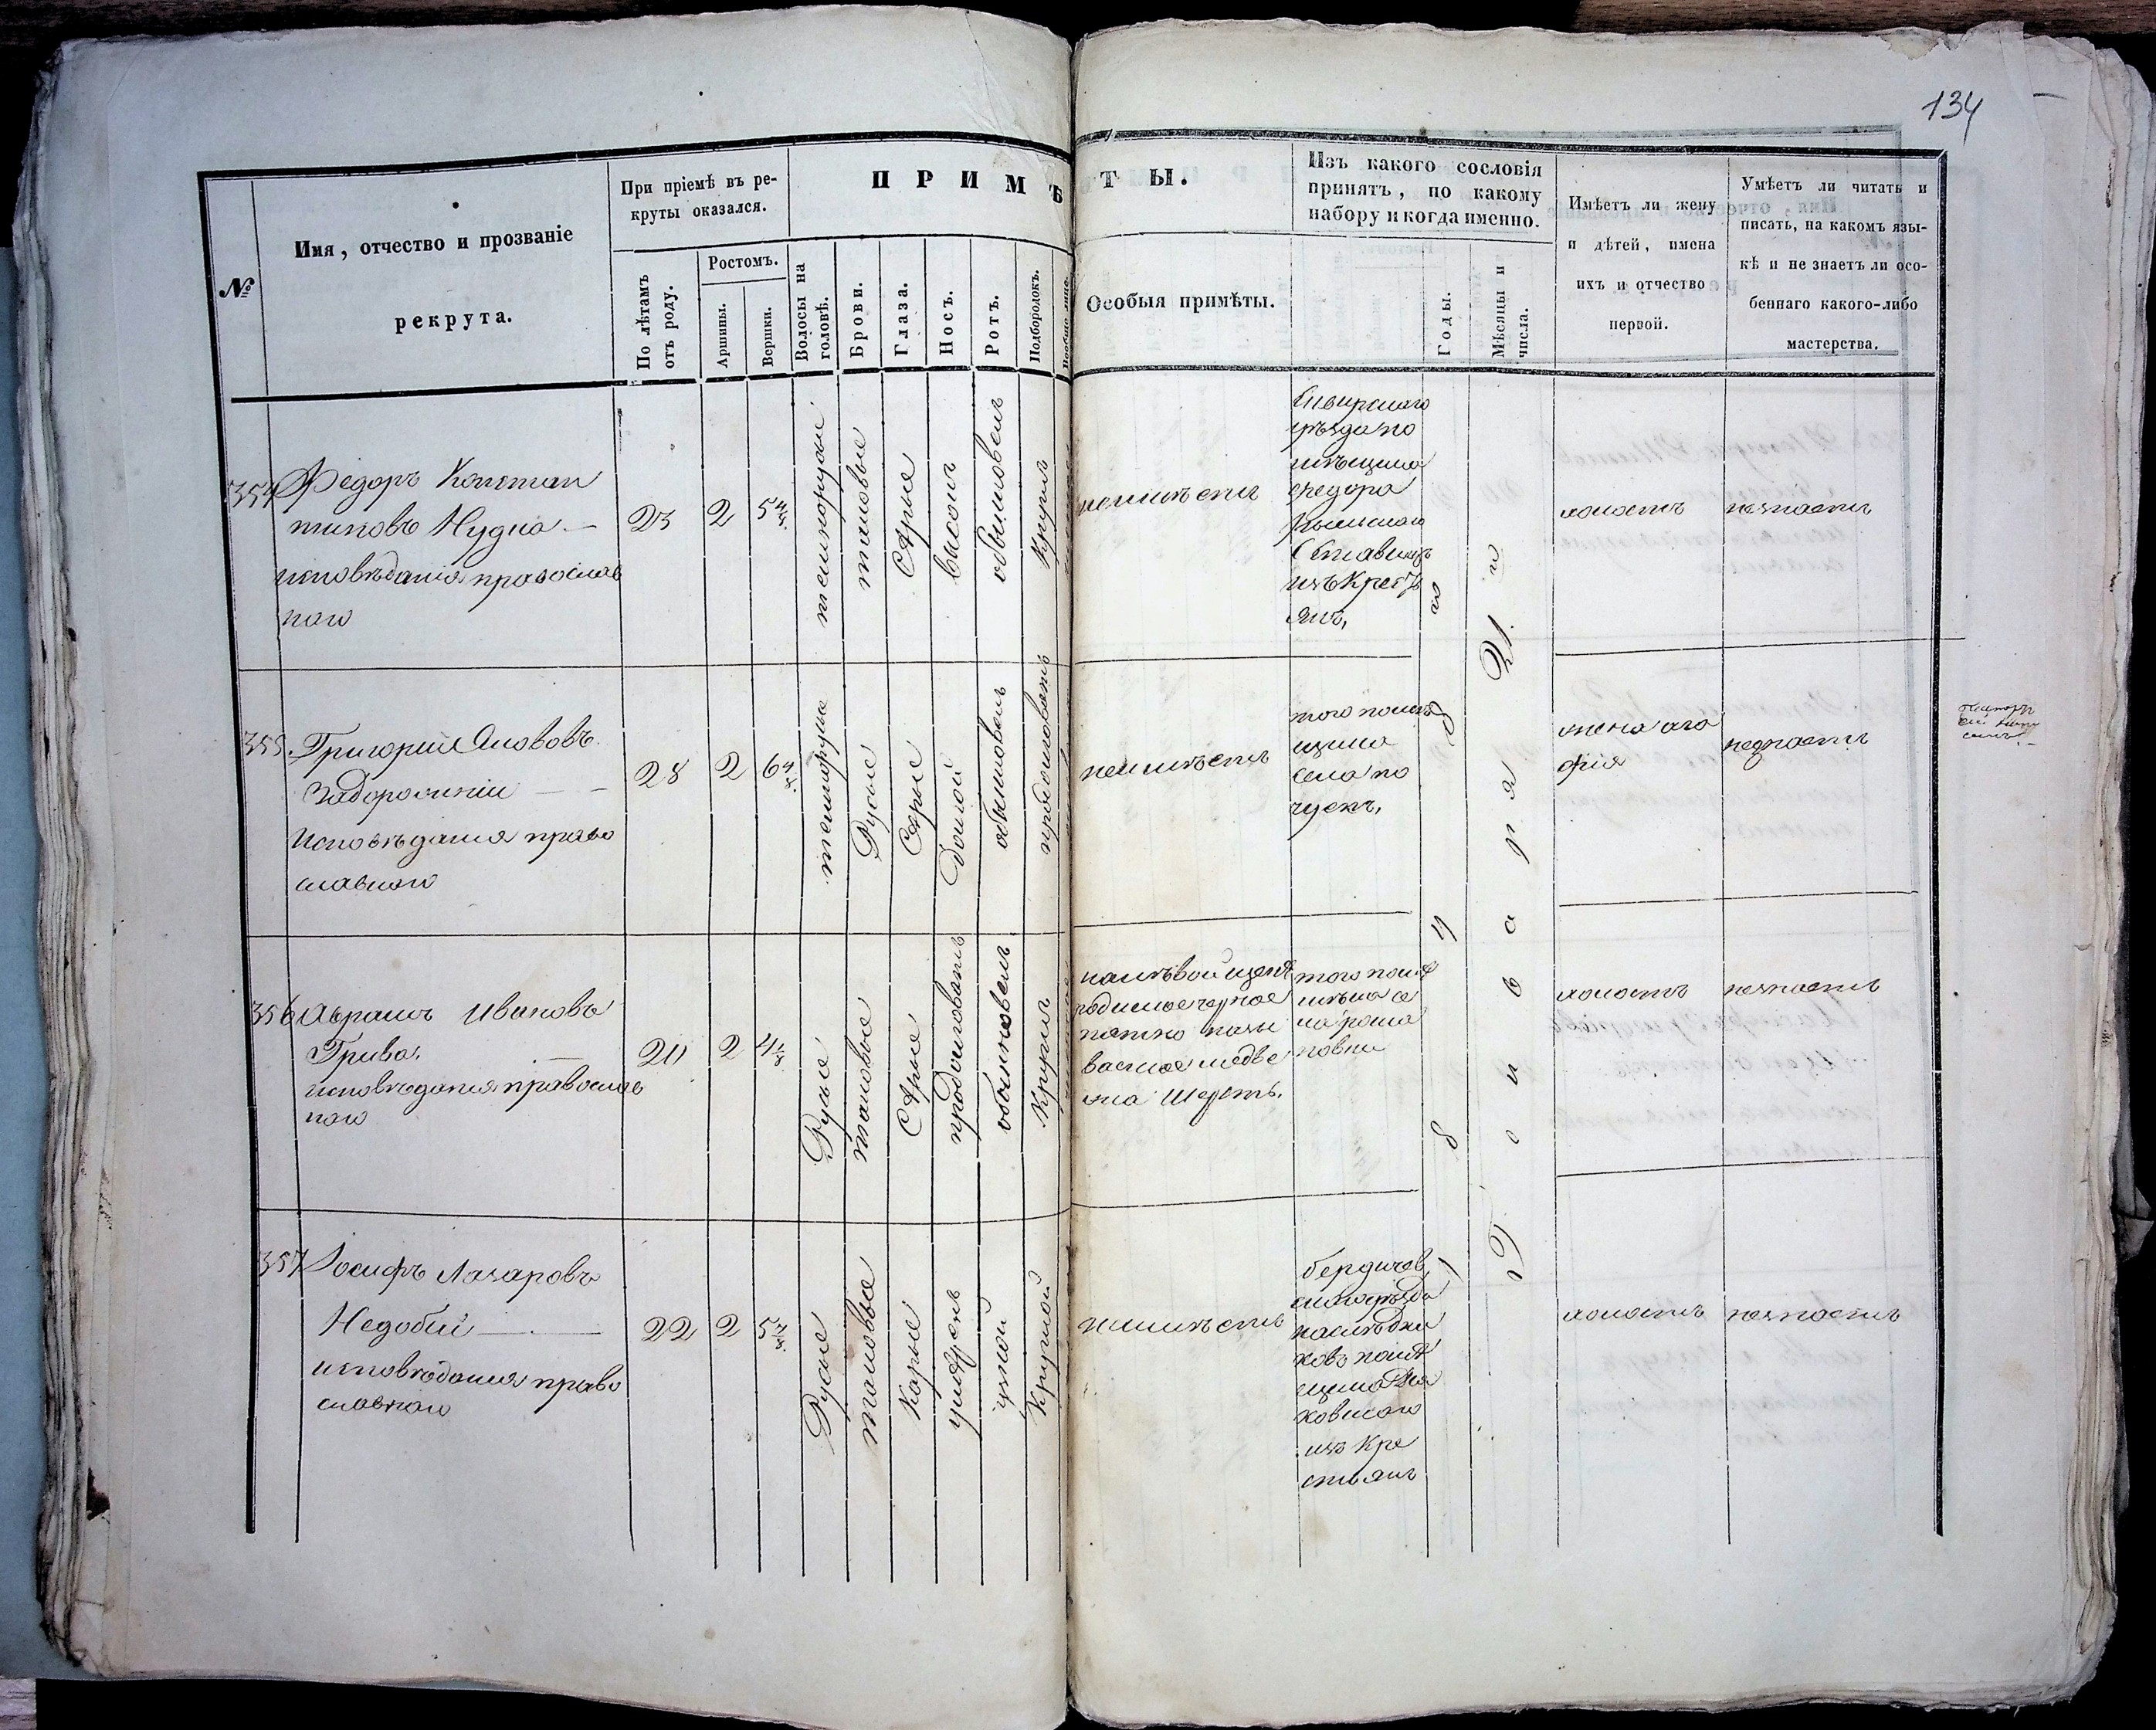 134
№
Имя, отчество и прозваніе
рекрута.
При пріемѣ въ ре-
круты оказался.
По лѣтамъ
отъ роду.
Ростомъ.
Аршины.
Вершки.
ПРИМѢТЫ.
Волосы на
головѣ.
Брови.
Глаза.
Носъ.
Ротъ.
Подбородокъ.
Особыя примѣты.
Изъ какого сословія
принятъ, по какому
набору и когда именно.
Годы.
Мѣсяцы и
числа.
Имѣетъ ли жену
и дѣтей, имена
ихъ и отчество
первой.
Умѣетъ ли читать и
писать, на какомъ язы-
кѣ и не знаетъ ли осо-
беннаго какого-либо
мастерства.
354
Федоръ Констан
тиновъ Нудна
исповѣданія православ
наго
23
2
5 4/8
темнорусые
таковые
Сѣрые
высокъ
обыкновенъ
Круглъ
неимѣетъ
уѣзда по
мѣщика
Федора
изъ Крестъ
янъ,
холостъ
незнаетъ
355.
Григорій Якововъ
Задорожній
Исповѣданія право
славнаго
28
2
6 4/8
темнорусые
Русые
Сѣрые
Долгой
обыкновенъ
продолговатъ
неимѣетъ
того помѣ
щика
села по
жена ага
фія
незнаетъ
356
Абрамъ Ивановъ
Грива.
исповѣданія православ
наго
20
2
4 4/8
Русые
таковые
Сѣрые
продолговатъ
обыкновенъ
Круглъ
налѣвой щекѣ
родимое черное
пятно назы
ваемое медве
жа шерсть.
того помѣ
щика се
ла рома
новки
холостъ
незнаетъ
357
Іосифъ Лазаровъ
Недобій
исповѣданія право
славнаго
22
2
5 4/8
Русые
таковые
Карые
умѣренъ
Круглой
неимѣетъ
бердичев
скаго уѣзда
наслѣдни
ковъ помѣ
щика
ховскаго
изъ Кре
стьянъ
холостъ
незнаетъ
Генваря 21